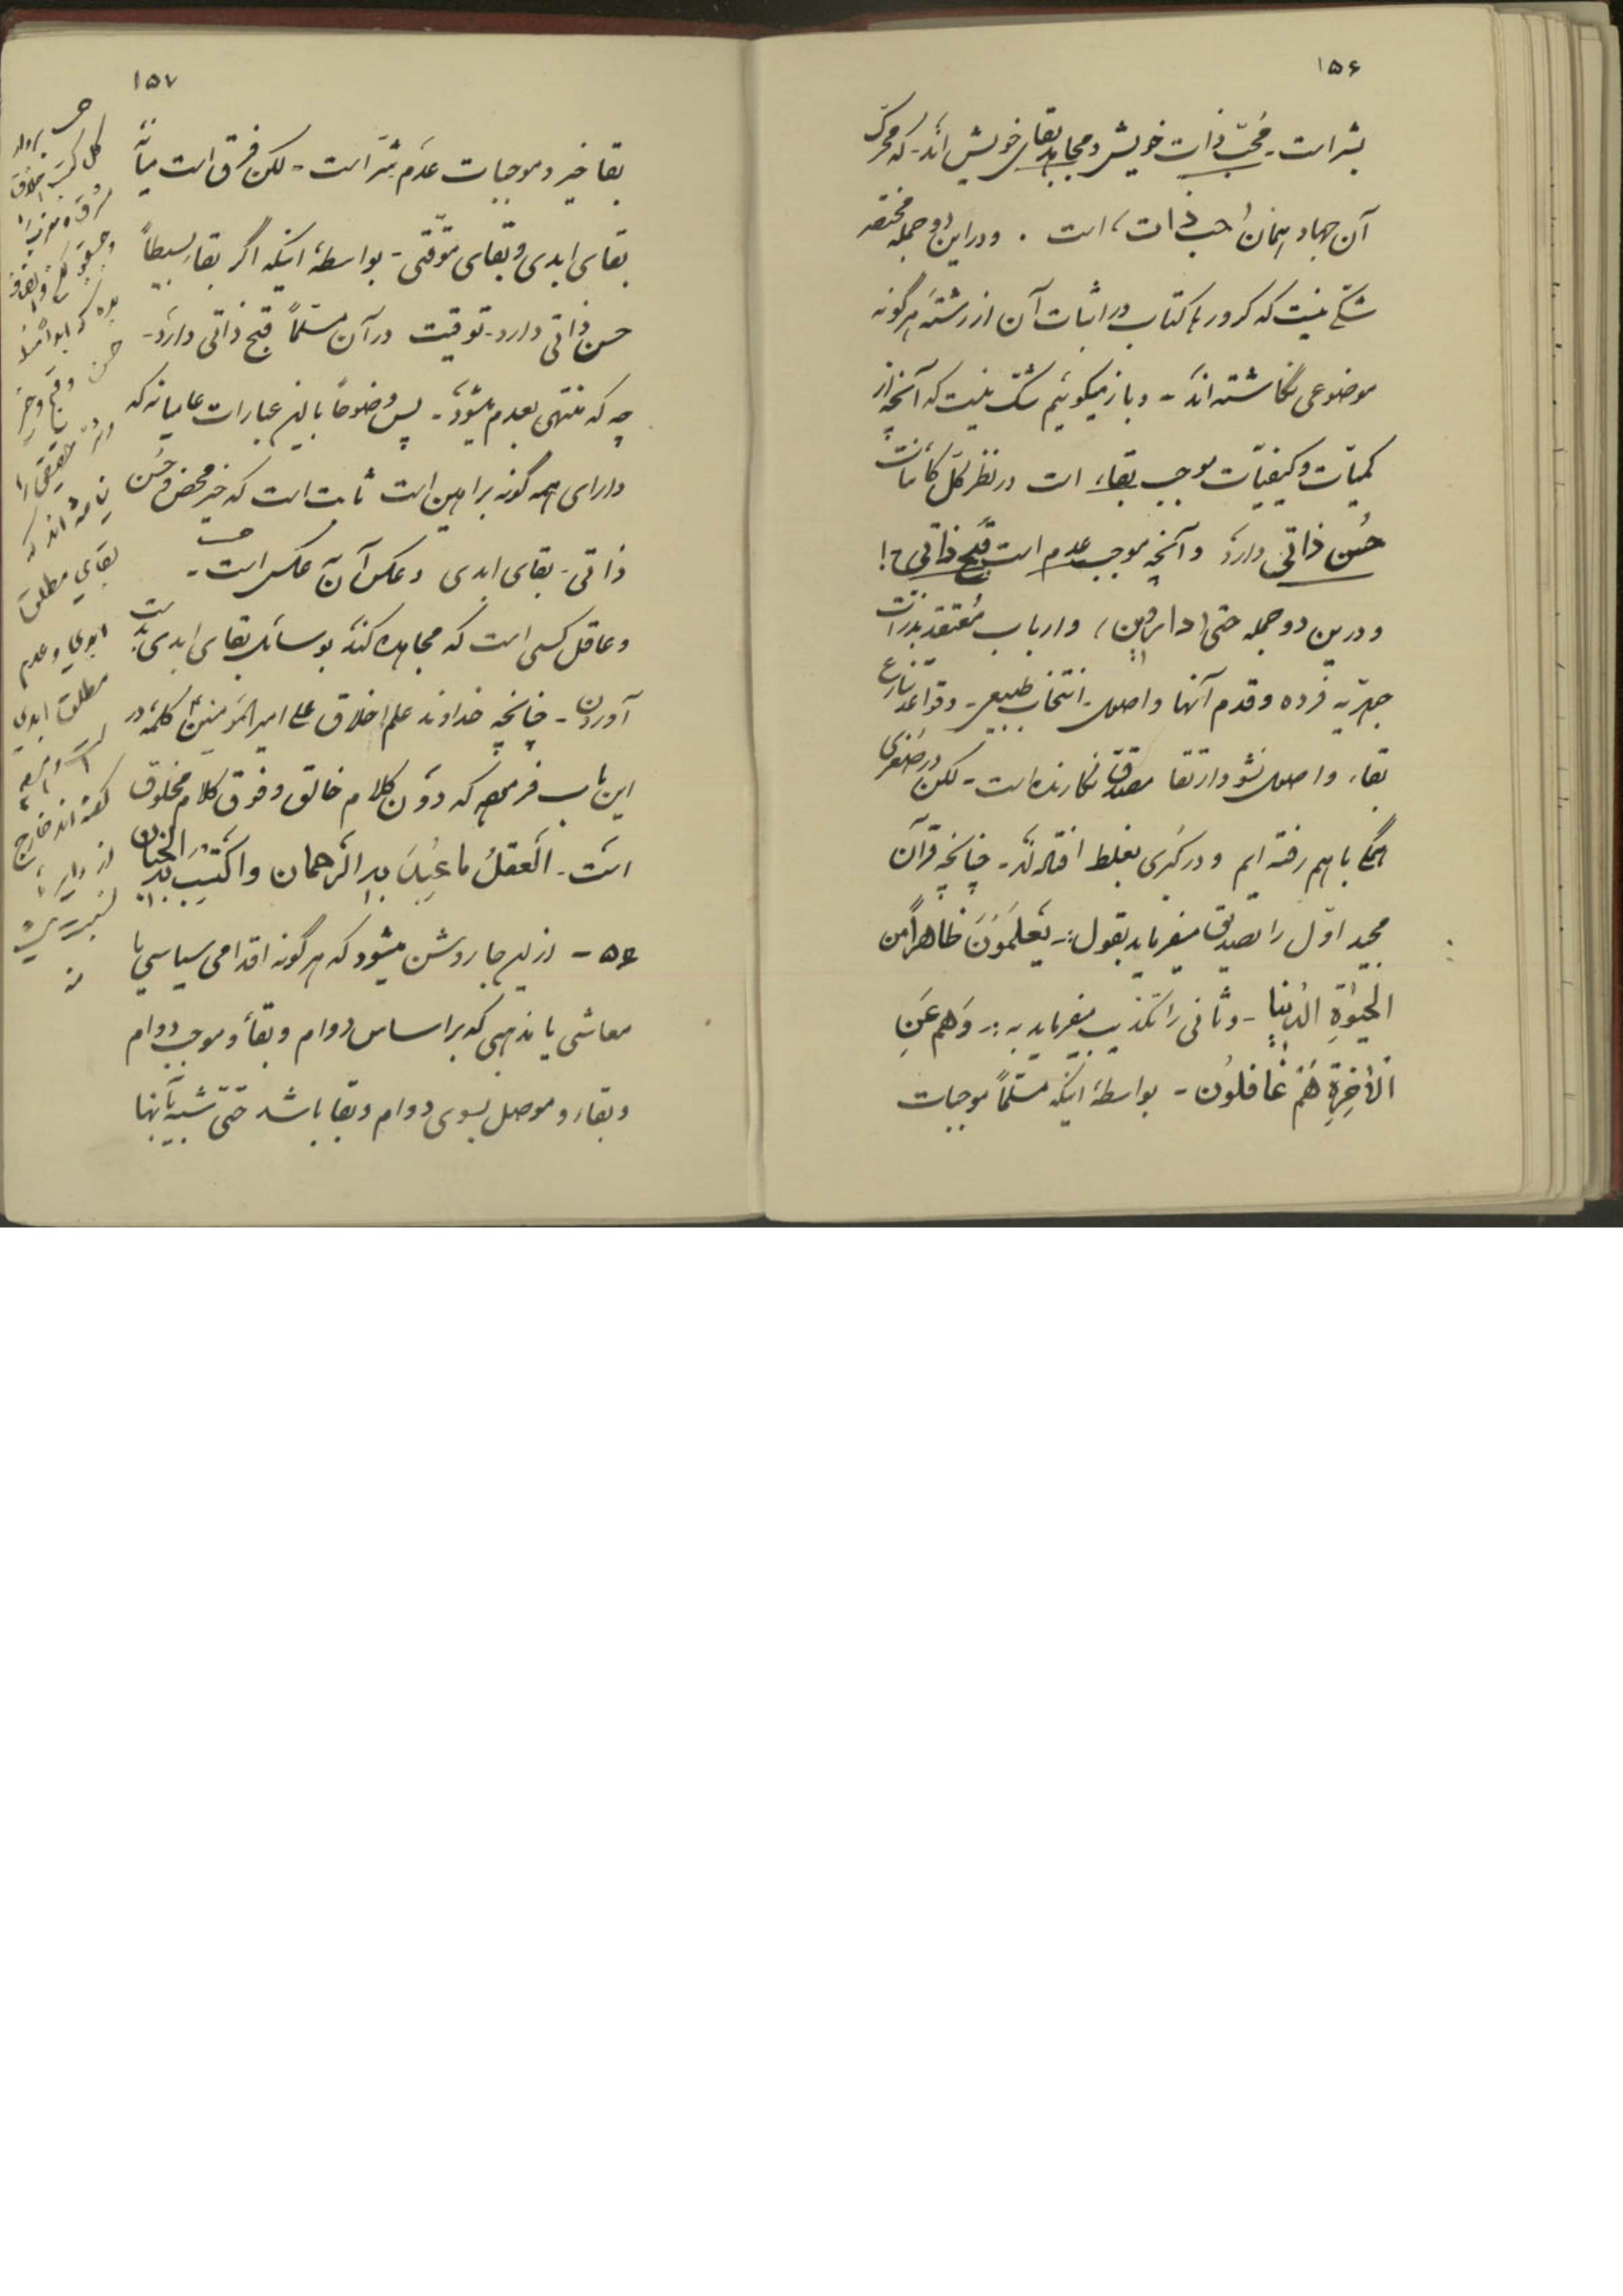 ۱۵۶
بشر است - مُحبّ ذات خویش و مجاهد بقای خویش‌اند - که محرّک
آن جهاد همان «حبّ ذات» است . و در این دو جمله مختصر
شکّی نیست که کرورها کتاب در اثبات آن از رشته هرگونه
موضوعی نگاشته‌اند - و باز میگوئیم شک نیست که آنچه از
کمیّات و کیفیّات موجب بقاء است در نظر کل کائنات
حُسن ذاتی دارد و آنچه موجب عدم است قُبح ذاتی؟!
و درین دو جمله حتی (داروین) و ارباب مُعتقد بذرات
جوهریه فرده و قدم آنها و اصول انتخاب طبیعی - و قواعد تنازع
بقاء و اصول نشو و ارتقا مصدق نگارنده است - لکن در صُغری
همگی باهم رفته‌ایم و در کُبری بغلط افتاده‌اند - چنانچه قرآن
مجید اوّل را تصدیق میفرماید بقول: یَعلَمُونَ ظاهراً من
الحیوةِ الدُنیا - و ثانی را تکذیب میفرماید به: وَهُم عَنِ
الآخِرَةِ هُم غافلوُن - بواسطهٔ اینکه مسلّماً موجبات
۱۵۷
بقا خیر و موجبات عدَم شرّ است - لکن فرق است میانهٔ
بقای ابدی و بقای موّقتی - بواسطهٔ اینکه اگر بقا بسیطاً
حسن ذاتی دارد - توقیت در آن مسلّماً قبح ذاتی دارد -
چه که منتهی بعدم میشود - پس وضوحاً باین عبارات عامیانه که
دارای همه گونه براهین است ثابت است که خیر محض و حُسن
ذاتی - بقای ابدی و عکس آن عکس است -
و عاقل کسی است که مجاهده کند بوسائل بقای ابدی بدست
آوردن - چنانچه خداوند علم اخلاق علی امیرالمؤمنین کلمهٔ در
این باب فرموده که دوُن کلام خالق و فوق کلام مخلوق
است - العَقلُ ما عُبِدَ بِهِ الرّحمان واکتُسِبَ بِهِ الجِنان
۵۶ - از این جا روشن میشود که هر گونه اقدامی سیاسی یا
معاشی یا مذهبی که بر اساس دوام و بقأ و موجب دوام
و بقاء و موصل بسوی دوام و بقا باشد حتّی شبیه بآنها
کل کتب اخلاق
حسن و قبح و خیر
و شر حقیقی را
بقای مطلق
ابدی و عدم
مطلق ابدی
گفته‌اند خارج